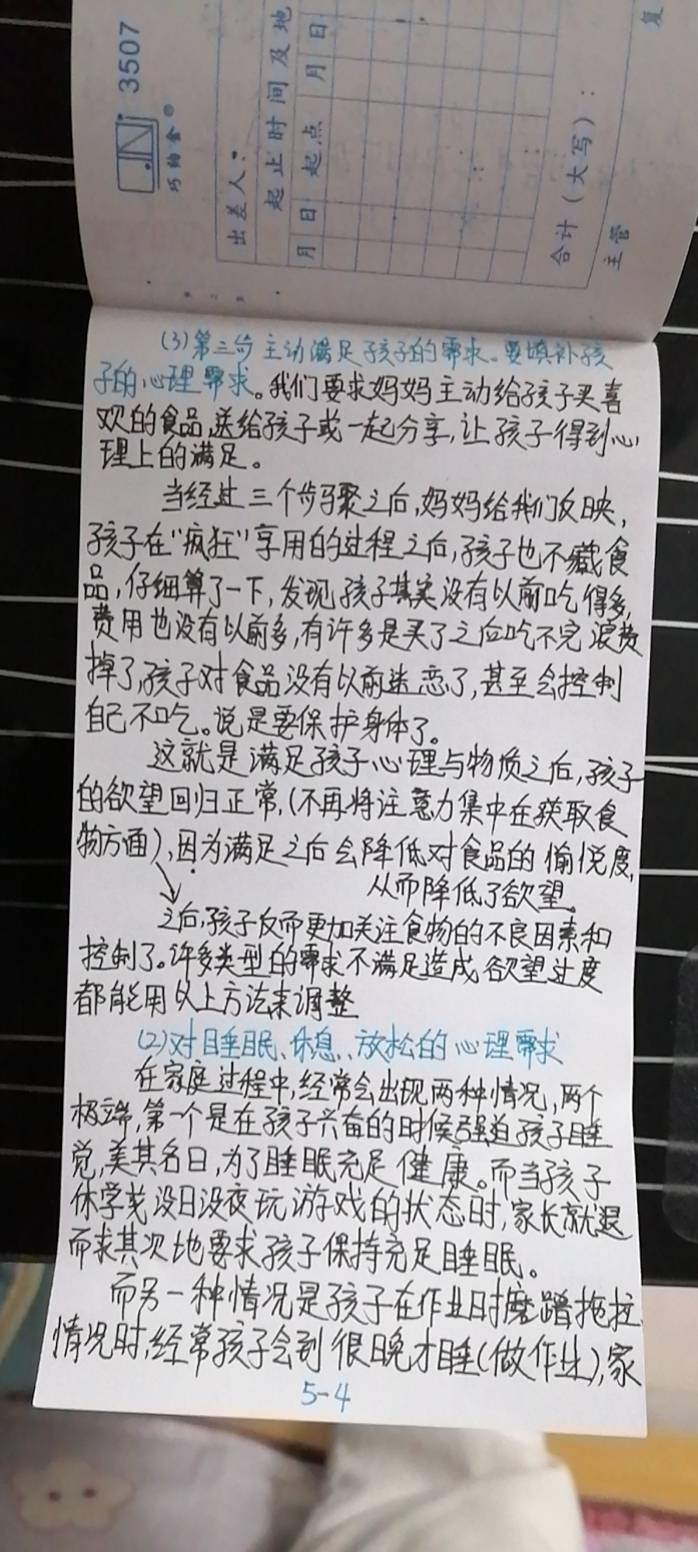 3507
巧绘金®
出差人:
起止时间及地
月 日 起点 月 日
合计(大写):
主管
复
(3)第三步主动满足孩子的需求。要填补孩
子的心理需求。我们要求妈妈主动给孩子买喜
欢的食品,送给孩子或一起分享,让孩子得到心
理上的满足。
当经过三个步骤之后,妈妈给我们反映,
孩子在“疯狂”享用的过程之后,孩子也不藏食
品,仔细算了一下,发现孩子其实没有以前吃得多,
费用也没有以前多,有许多是买了之后吃不完浪费
掉了,孩子对食品没有以前迷恋了,甚至会控制
自己不吃。说是要保护身体了。
这就是满足孩子心理与物质之后,孩子
的欲望回归正常,(不再将注意力集中在获取食
物方面),因为满足之后会降低对食品的愉悦度,
从而降低了欲望。
之后,孩子反而更加关注食物的不良因素和
控制了。许多类型的需求不满足造成欲望过度
都能用以上方法来调整
(2)对睡眠、休息、放松的心理需求
在家庭过程中,经常会出现两种情况,两个
极端,第一个是在孩子兴奋的时候强迫孩子睡
觉,美其名曰,为了睡眠充足健康。而当孩子
休学或没日没夜玩游戏的状态时,家长就退
而求其次地要求孩子保持充足睡眠。
而另一种情况是孩子在作业时磨蹭拖拉
情况时,经常孩子会到很晚才睡(做作业),家
5-4